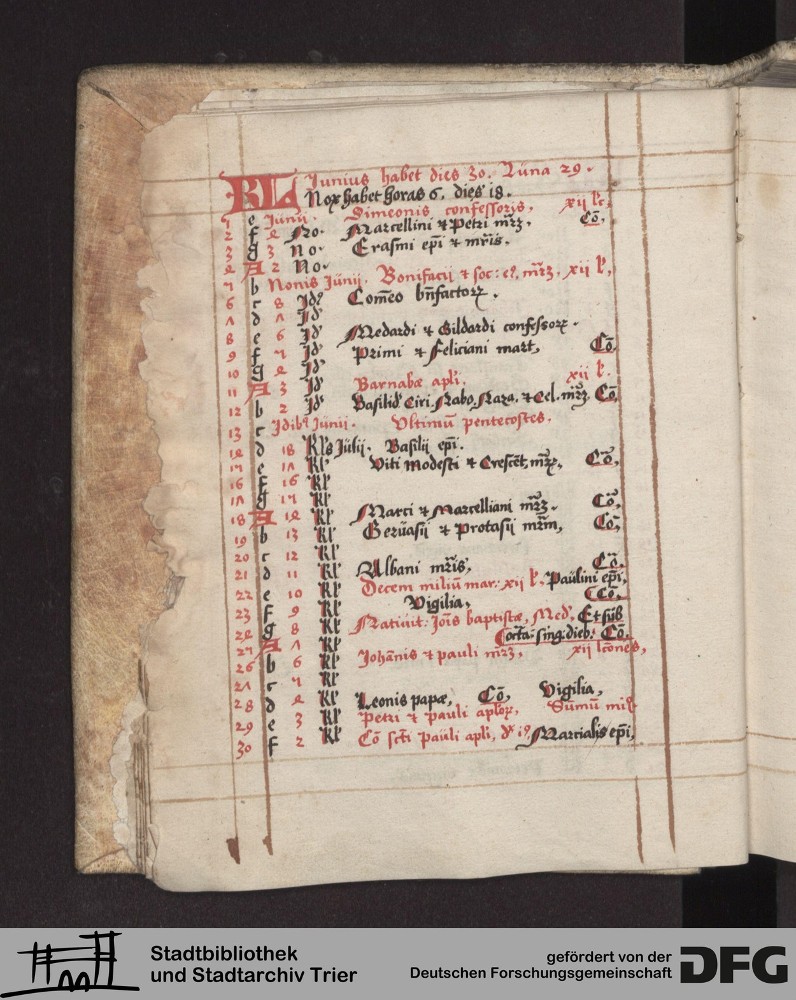 KL Junius habet dies 30. Luna 29.
Nox habet horas 6. dies 18.
1 e Junij. Simeonis confessoris. xii lc.
2 f 4 No. Marcellini & Petri mr̄z. Cō.
3 g 3 No. Erasmi ep̄i & mr̄is.
4 A 2 No.
5 b Nonis Junij. Bonifacij & soc: eꝰ. mr̄z. xii l.
6 c 8 Jdꝰ Com̄eo bn̄factorꝝ.
7 d 7 Jd
8 e 6 Jd Medardi & Gildardi confessorꝝ.
9 f 5 Jd Primi & Feliciani mart. Cō.
10 g 4 Jd
11 A 3 Jd Barnabæ apl̄i. xii l.
12 b 2 Jd Basilid. Ciri. Nabo. Naza. & Cel. mr̄z. Cō.
13 c Jdibꝰ Junij. Vltimū pentecostes.
14 d 18 Kls Julij. Basilij ep̄i.
15 e 17 Kl Viti Modesti & Crescēt. mr̄z. Cō.
16 f 16 Kl
17 g 15 Kl
18 A 14 Kl Marci & Marcelliani mr̄z. Cō.
19 b 13 Kl Geruasij & Protasij mr̄m. Cō.
20 c 12 Kl
21 d 11 Kl Albani mr̄is. Cō.
22 e 10 Kl Decem miliū mar: xii l. Paulini ep̄i.
23 f 9 Kl Vigilia. Cō.
24 g 8 Kl Natiuit: Jōis baptistæ. Med. Et sub
25 A 7 Kl octa: sing: dieb: Cō.
26 b 6 Kl Johānis & pauli mr̄z. xii lcones.
27 c 5 Kl
28 d 4 Kl Leonis papæ. Cō. Vigilia.
29 e 3 Kl Petri & Pauli aplorꝝ. Summ
30 f 2 Kl Cō sc̄ti Pauli apl̄i. Martialis ep̄i.
Stadtbibliothek
und Stadtarchiv Trier
gefördert von der
Deutschen Forschungsgemeinschaft
DFG